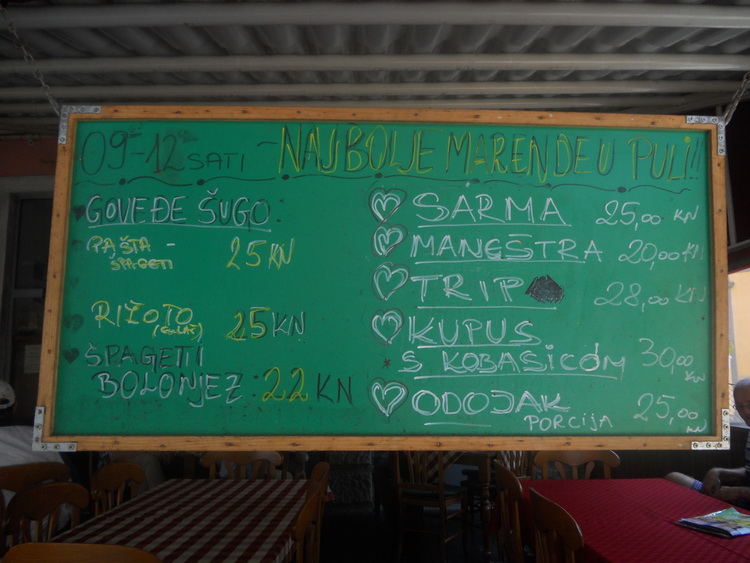 09-12 SATI - NAJBOLJE MARENDE U PULI!!
GOVEĐE ŠUGO
PAŠTA -
ŠPAGETI 25 KN
RIŽOTO 25 KN
(GULAŠ)
ŠPAGETI
BOLONJEZ 22 KN
SARMA 25,00 KN
MANEŠTRA 20,00 KN
TRIP 28,00 KN
KUPUS
S KOBASICOM 30,00 KN
ODOJAK 25,00 KN
PORCIJA